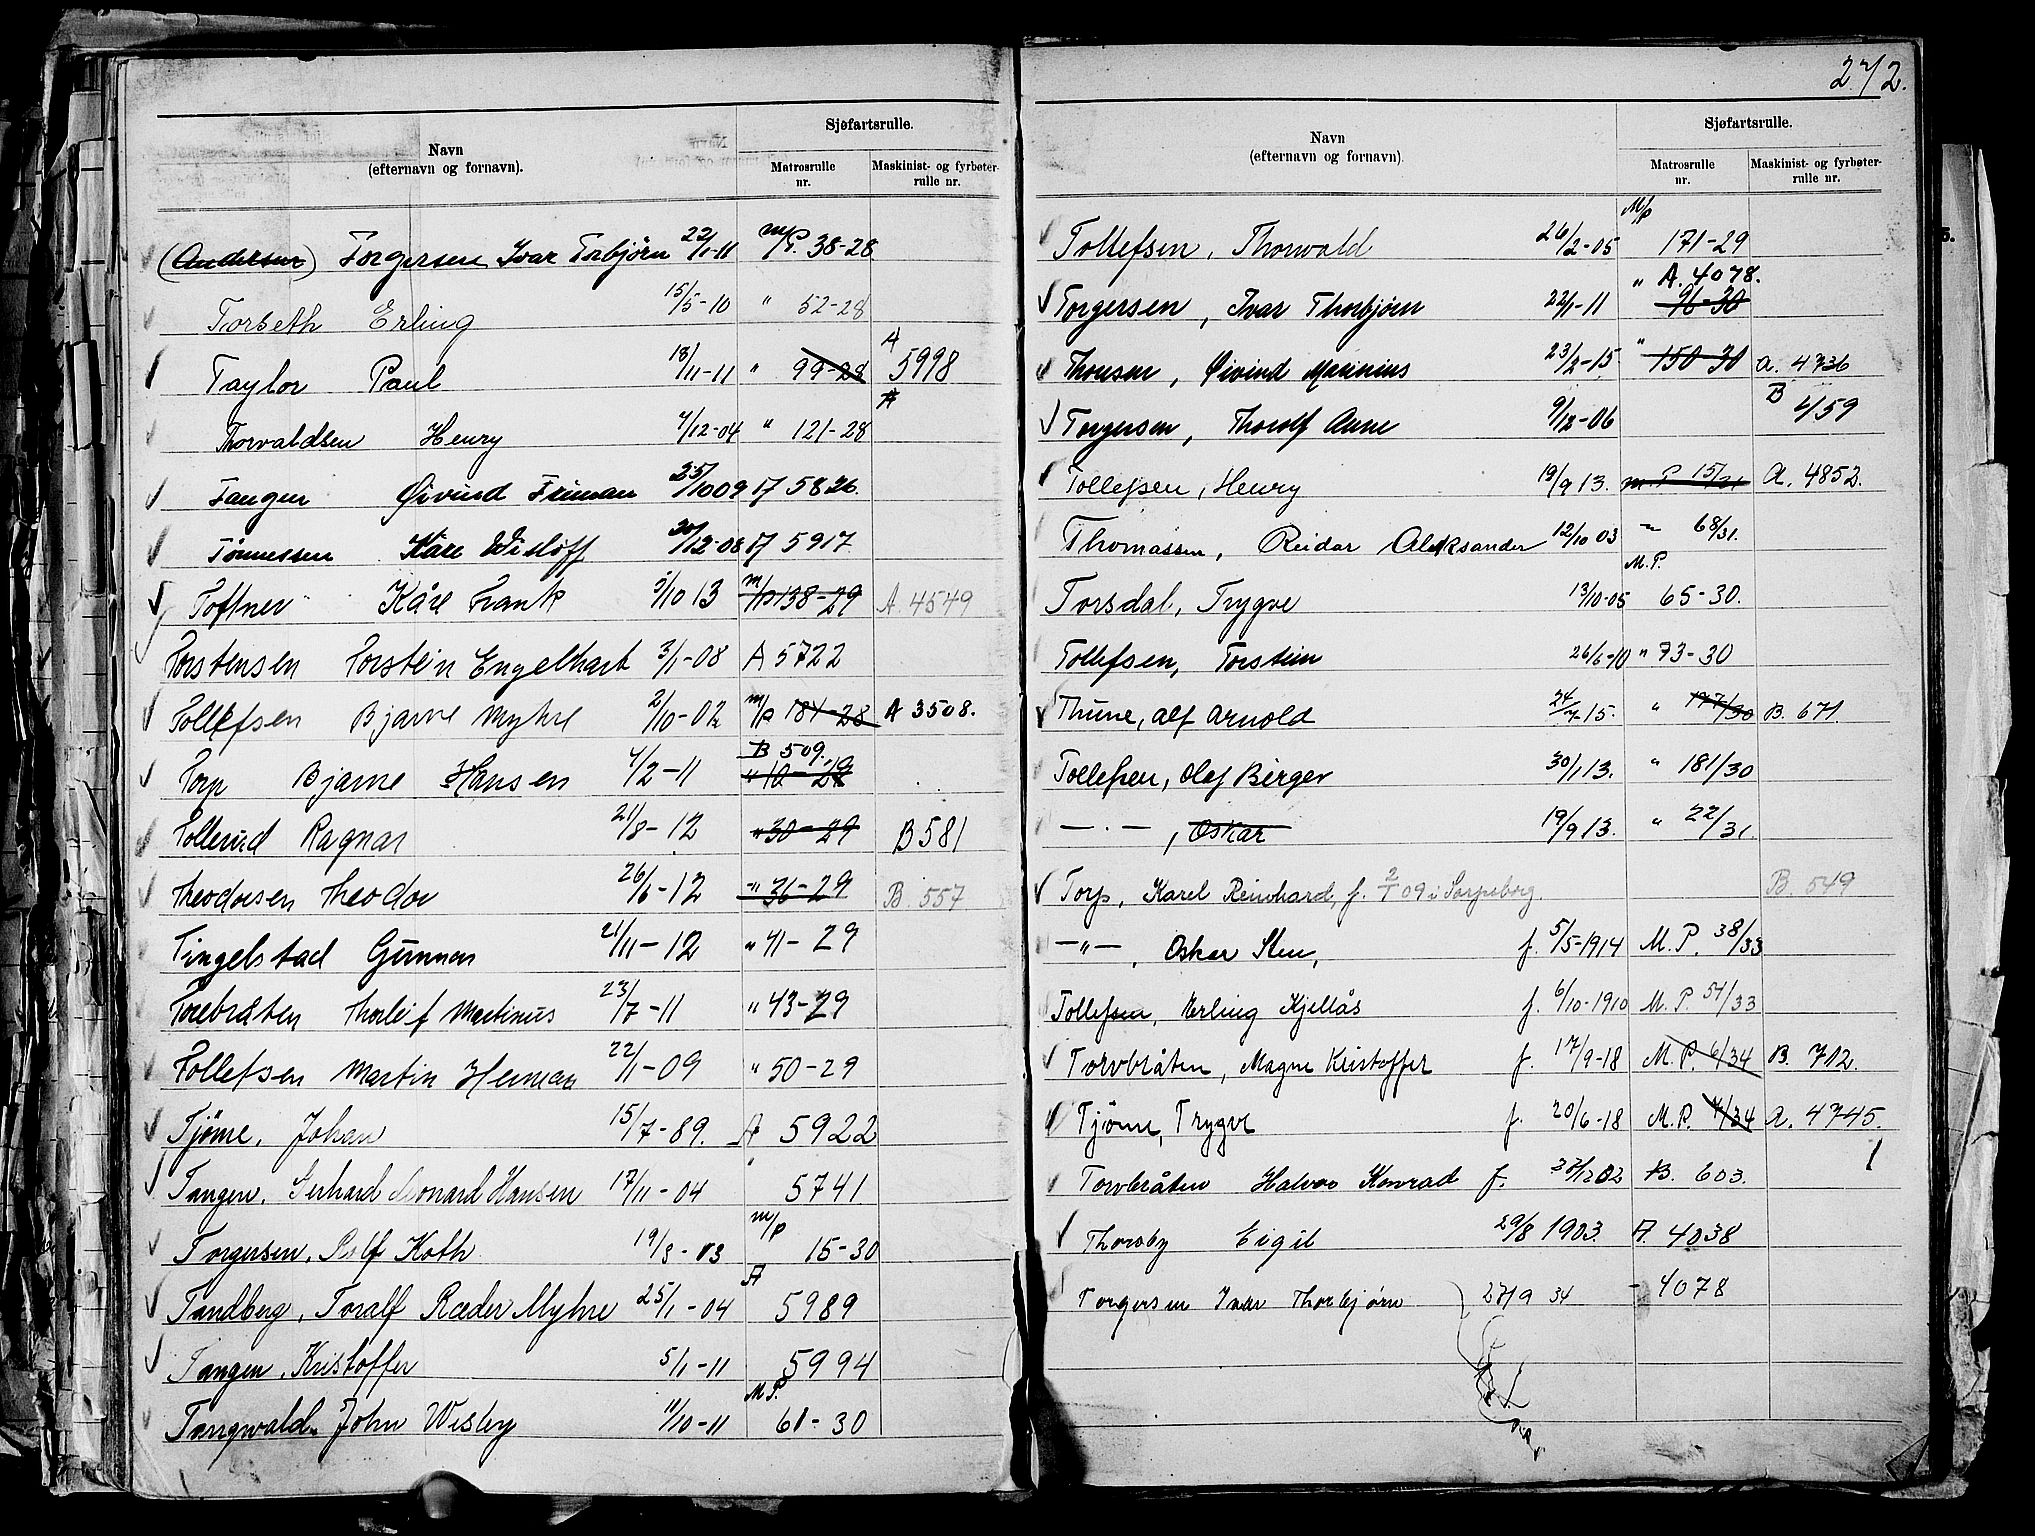 272.
Navn
(efternavn og fornavn).
Sjøfartsrulle.
Matrosrulle nr.
Maskinist- og fyrbøter-rulle nr.
(Andersen) Torgersen Ivar Torbjörn 22/1-11 m/P. 38-28
Torseth Erling 15/5-10 " 52-28
Taylor Paul 18/11-11 " 99-28 A 5998
Thorvaldsen Henry 4/12-04 " 121-28 A
Tangen Øivind Friman 25/10 09 A 5826.
Tönnessen Kåre Wisløff 30/12-08 A 5917
Toftner Kåre Frank 5/10 13 m/p 138-29 A. 4549
Torstensen Torstein Engelhart 3/1-08 A 5722
Tollefsen Bjarne Myhre 2/10-02 m/p 184-28 A 3508.
Torp Bjarne Hansen 4/2-11 B 509. " 10-29
Tollerud Ragnar 21/8-12 " 30-29 B 581
Theodorsen Theodor 26/6-12 " 36-29 B. 557
Tingelstad Gunnar 21/11-12 " 41-29
Torebråten Thorleif Martinus 23/7-11 " 43-29
Tollefsen Martin Herman 22/1-09 " 50-29
Tjøme, Johan 15/7-89. A 5922
Tangen, Gerhard Leonard Hansen 17/11-04 " 5741
Torgersen, Rolf Koth 19/8-03 m/p 15-30
Tandberg, Toralf Ræder Myhre 25/1-04 A 5989
Tangen, Kristoffer 5/1-11 5994
Tangwald, John Wisby 11/10-11 M.P. 61-30
Navn
(efternavn og fornavn).
Sjøfartsrulle.
Matrosrulle nr.
Maskinist- og fyrbøter-rulle nr.
Tollefsen, Thorwald 26/2-05 M/p 171-29
Torgersen, Ivar Thorbjørn 22/1-11 " A. 4078. 96-30
Thonsen, Øivind Marinius 23/2-15 " 150-30 A. 4736
Torgersen, Thorolf Anne 9/12-06 B 459
Tollefsen, Henry 19/9 13. M.P 15/31 A. 4852.
Thomassen, Reidar Aleksander 12/10 03 - 68/31.
Torsdal, Trygve 13/10-05 M.P. 65-30.
Tollefsen, Torstein 26/6-10 " 73-30
Thune, Alf Arnold 24/7 15. " 177/30 B. 671.
Tollefsen, Olaf Birger 30/1 13. " 181/30
— . — , Oskar 19/9 13. " 22/31.
Torp, Karel Reinhard, f. 2/1 09 i Sarpsborg. B. 549
— " — , Oskar Sten, f. 5/5-1914 M.P. 38/33
Tollefsen, Erling Kjellås f. 6/10-1910 M.P. 54/33
Torvbråten, Magne Kristoffer f. 17/9-18 M.P. 6/34 B. 702.
Tjöme, Trygve f. 20/6-18 M.P. 7/34 A. 4745.
Torvbråten Halvor Konrad f. 23/12 02 B. 603.
Thorsby Eigil 29/8 1903. A. 4038
Torgersen Ivar Thorbjørn 27/9 34 - 4078